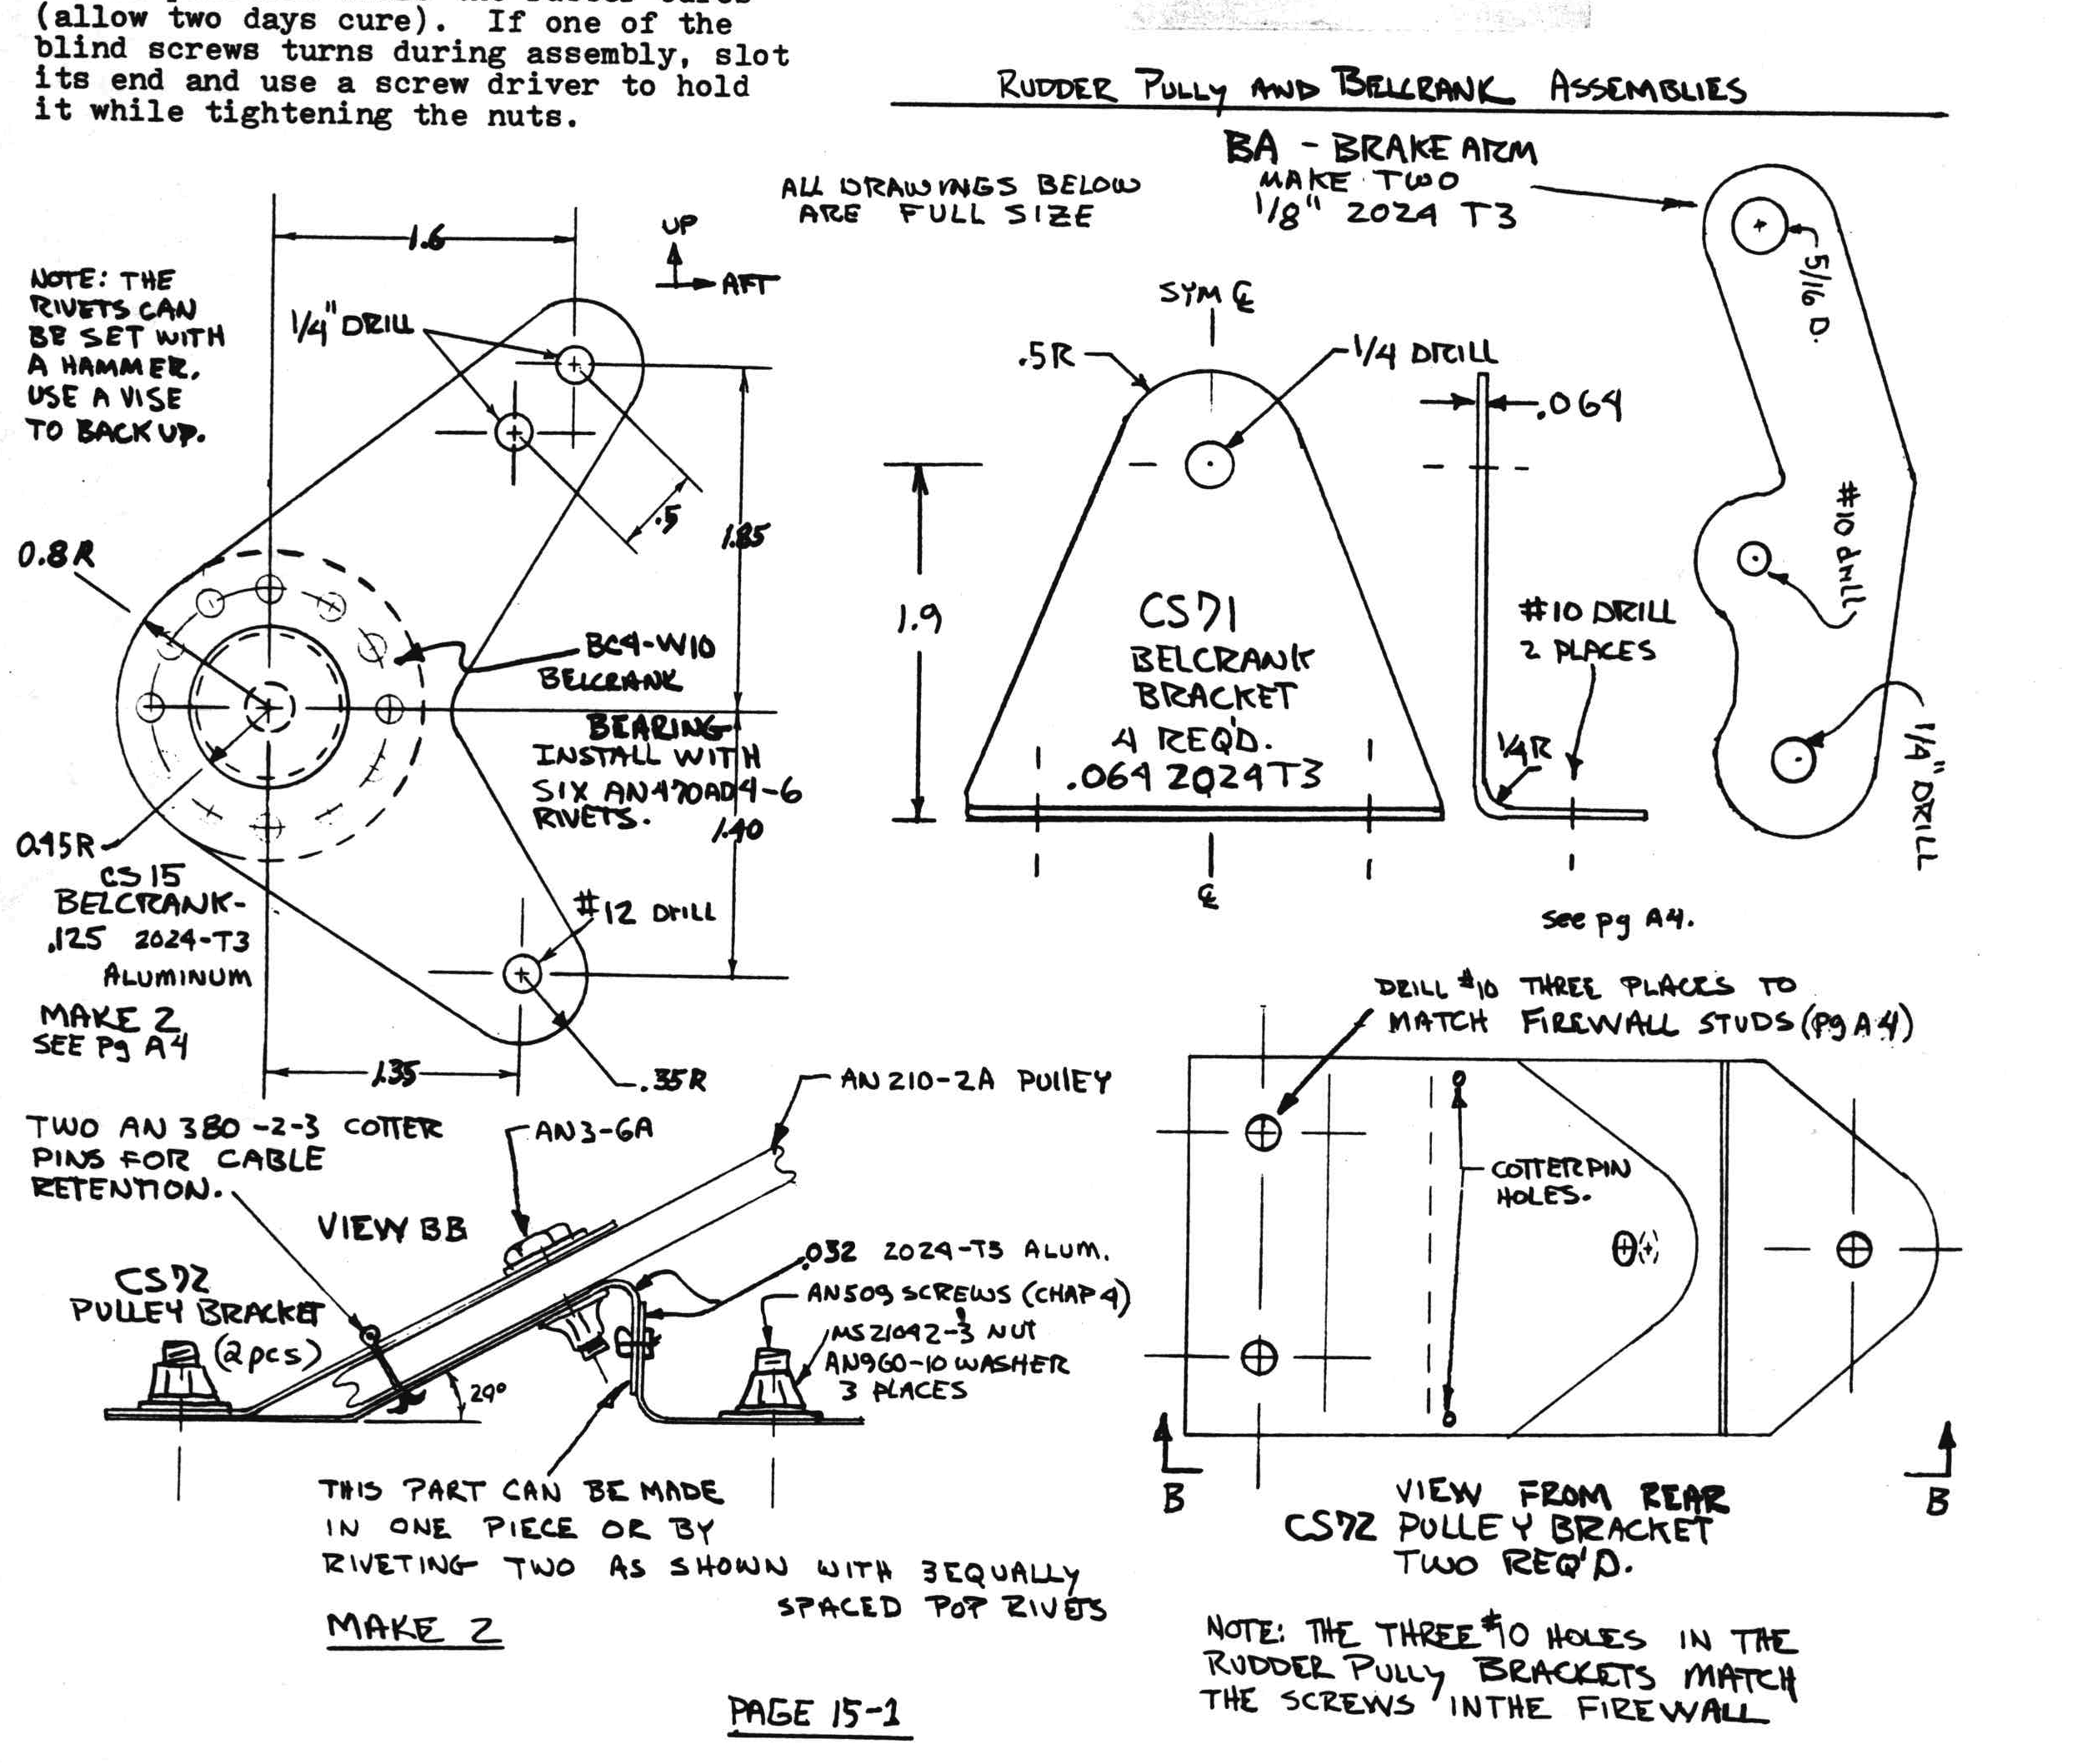 (allow two days cure).  If one of the
blind screws turns during assembly, slot
its end and use a screw driver to hold
it while tightening the nuts.
RUDDER PULLY AND BELCRANK ASSEMBLIES
BA - BRAKE ARM
MAKE TWO
1/8" 2024 T3
ALL DRAWINGS BELOW
ARE FULL SIZE
5/16 D.
#10 drill
1/4" DRILL
1.6
UP
AFT
NOTE: THE
RIVETS CAN
BE SET WITH
A HAMMER,
USE A VISE
TO BACK UP.
1/4" DRILL
.5
1.85
0.8R
BC4-W10
BELCRANK
BEARING
INSTALL WITH
SIX AN470AD4-6
RIVETS.
1.40
0.45R
CS15
BELCRANK-
.125 2024-T3
ALUMINUM
MAKE 2
SEE Pg A4
#12 DRILL
1.35
.35R
SYM ℄
.5R
1/4 DRILL
.064
1.9
CS71
BELCRANK
BRACKET
4 REQ'D.
.064 2024T3
℄
#10 DRILL
2 PLACES
1/4R
see pg A4.
TWO AN 380-2-3 COTTER
PINS FOR CABLE
RETENTION.
AN3-6A
AN210-2A PULLEY
VIEW BB
CS72
PULLEY BRACKET
(2pcs)
29°
.032 2024-T3 ALUM.
AN509 SCREWS (CHAP 4)
MS21042-3 NUT
AN960-10 WASHER
3 PLACES
THIS PART CAN BE MADE
IN ONE PIECE OR BY
RIVETING TWO AS SHOWN WITH 3 EQUALLY
SPACED POP RIVETS
MAKE 2
DRILL #10 THREE PLACES TO
MATCH FIREWALL STUDS (pg A4)
COTTERPIN
HOLES.
B
B
VIEW FROM REAR
CS72 PULLEY BRACKET
TWO REQ'D.
NOTE: THE THREE #10 HOLES IN THE
RUDDER PULLY BRACKETS MATCH
THE SCREWS IN THE FIREWALL
PAGE 15-1